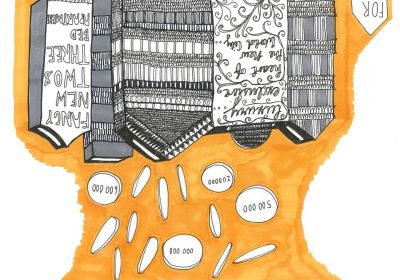 FOR
FANCY
NEW
TWO &
THREE
BED
Luxury
exclusive
heart of
the New
World City
600 000
200 000
500 000
800 000